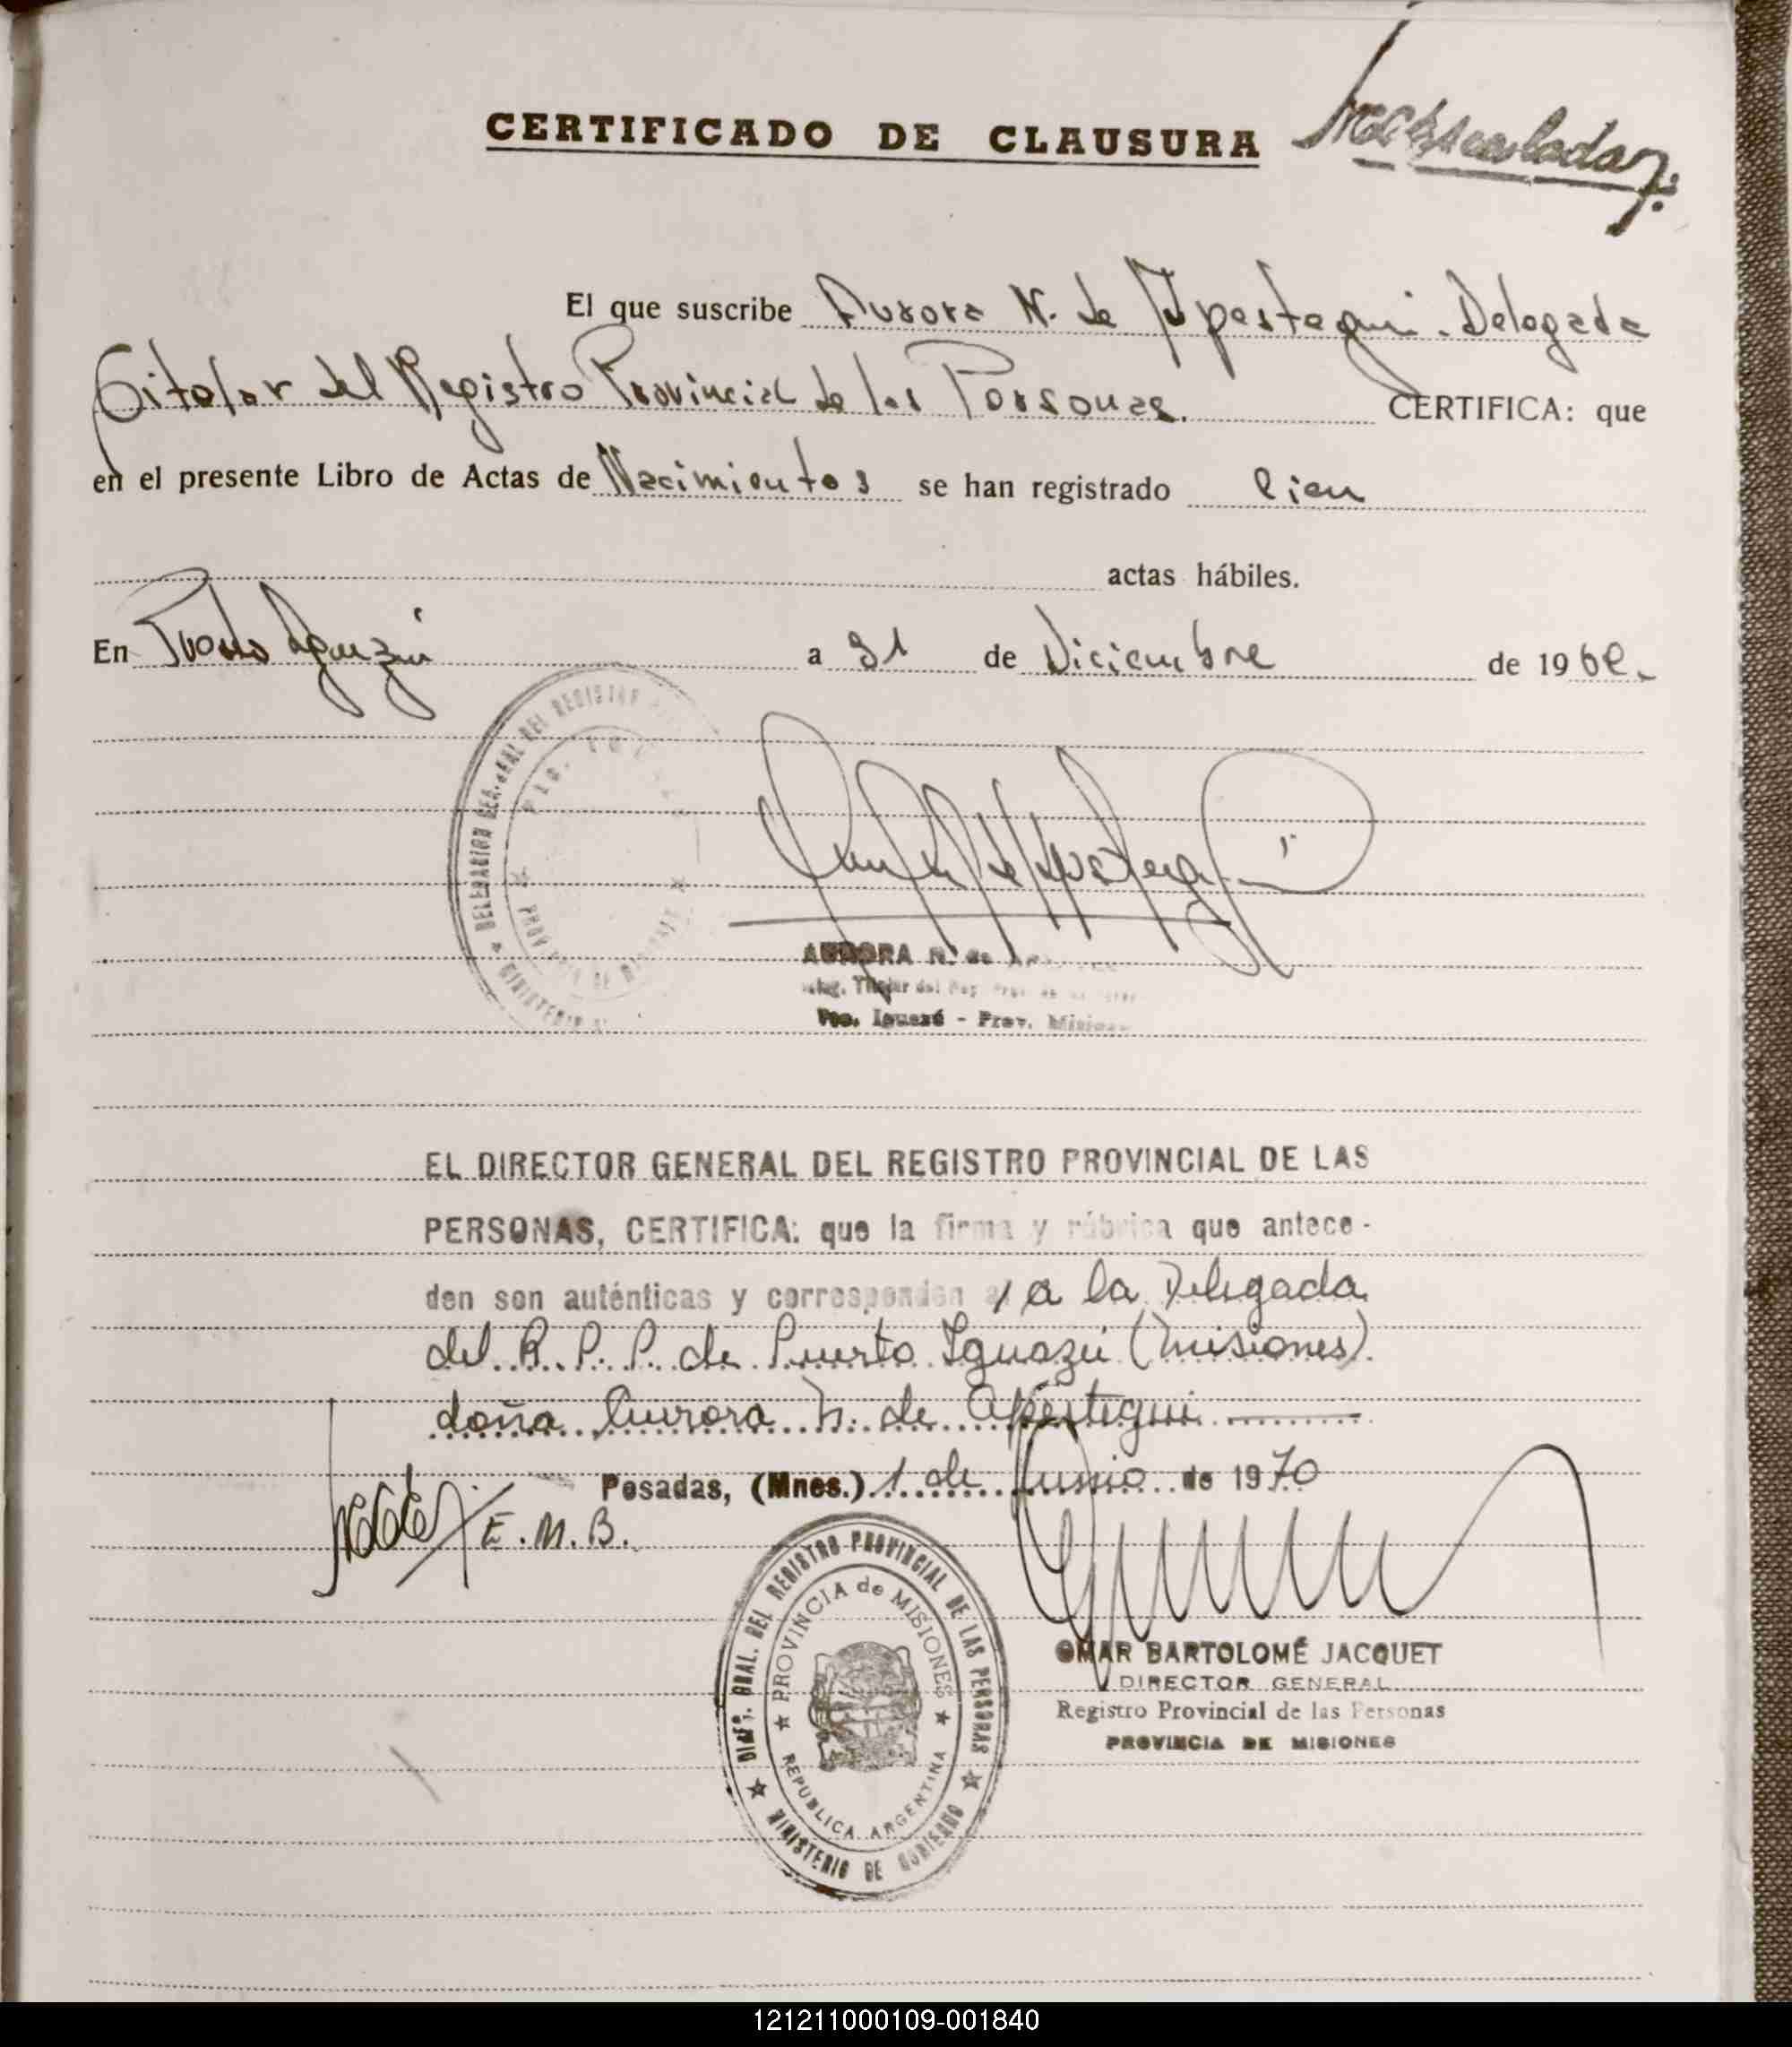 CERTIFICADO DE CLAUSURA
El que suscribe Aurora N. de Apestegui. Delegada
Titular del Registro Provincial de las Personas. CERTIFICA: que
en el presente Libro de Actas de Nacimientos se han registrado Cien
actas hábiles.
En Puerto Iguazú a 31 de Diciembre de 19
DELEGACION DEL REGISTRO
PROVINCIA DE MISIONES
MINISTERIO
AURORA N. de
Titular del
Pto. Iguazú - Prov. Misiones
EL DIRECTOR GENERAL DEL REGISTRO PROVINCIAL DE LAS
PERSONAS, CERTIFICA: que la firma y rúbrica que antece-
den son auténticas y corresponden a / a la Delegada
del R. P. P. de Puerto Iguazú (Misiones).
doña Aurora N. de Apestegui
Posadas, (Mnes.) 1 de Junio de 1970
E. M. B.
DIRº. GRAL. DEL REGISTRO PROVINCIAL DE LAS PERSONAS
PROVINCIA de MISIONES
REPUBLICA ARGENTINA
MINISTERIO DE GOBIERNO
OMAR BARTOLOMÉ JACQUET
DIRECTOR GENERAL
Registro Provincial de las Personas
PROVINCIA DE MISIONES
121211000109-001840